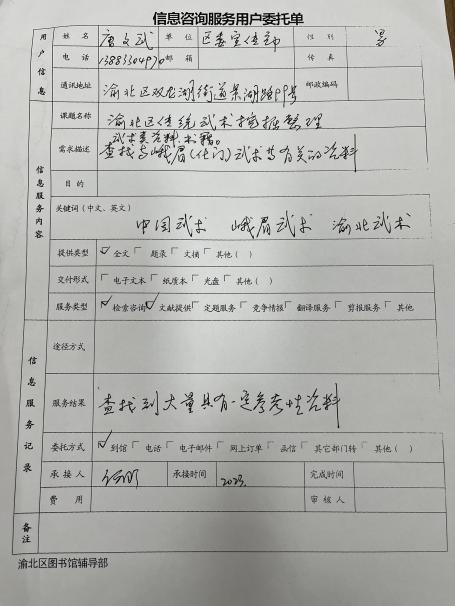 信息咨询服务用户委托单
用户信息
姓名 唐文武 单位 区委宣传部 性别 男
电话 13883304970 邮箱 传真
通讯地址 渝北区双龙湖街道果湖路99号 邮政编码
信息服务内容
课题名称 渝北区传统武术挖掘整理
需求描述 武术类资料、书籍。
查找与峨眉(化门)武术有关的资料
目的
关键词(中文、英文)
中国武术 峨眉武术 渝北武术
提供类型 全文 题录 文摘 其他( )
交付形式 电子文本 纸质本 光盘 其他( )
服务类型 检索咨询 文献提供 定题服务 竞争情报 翻译服务 剪报服务 其他
信息服务记录
途径方式
服务结果 查找到大量具有一定参考性资料
委托方式 到馆 电话 电子邮件 网上订单 函信 其它部门转 其他( )
承接人 承接时间 2023. 完成时间
费用 审核人
备注
渝北区图书馆辅导部